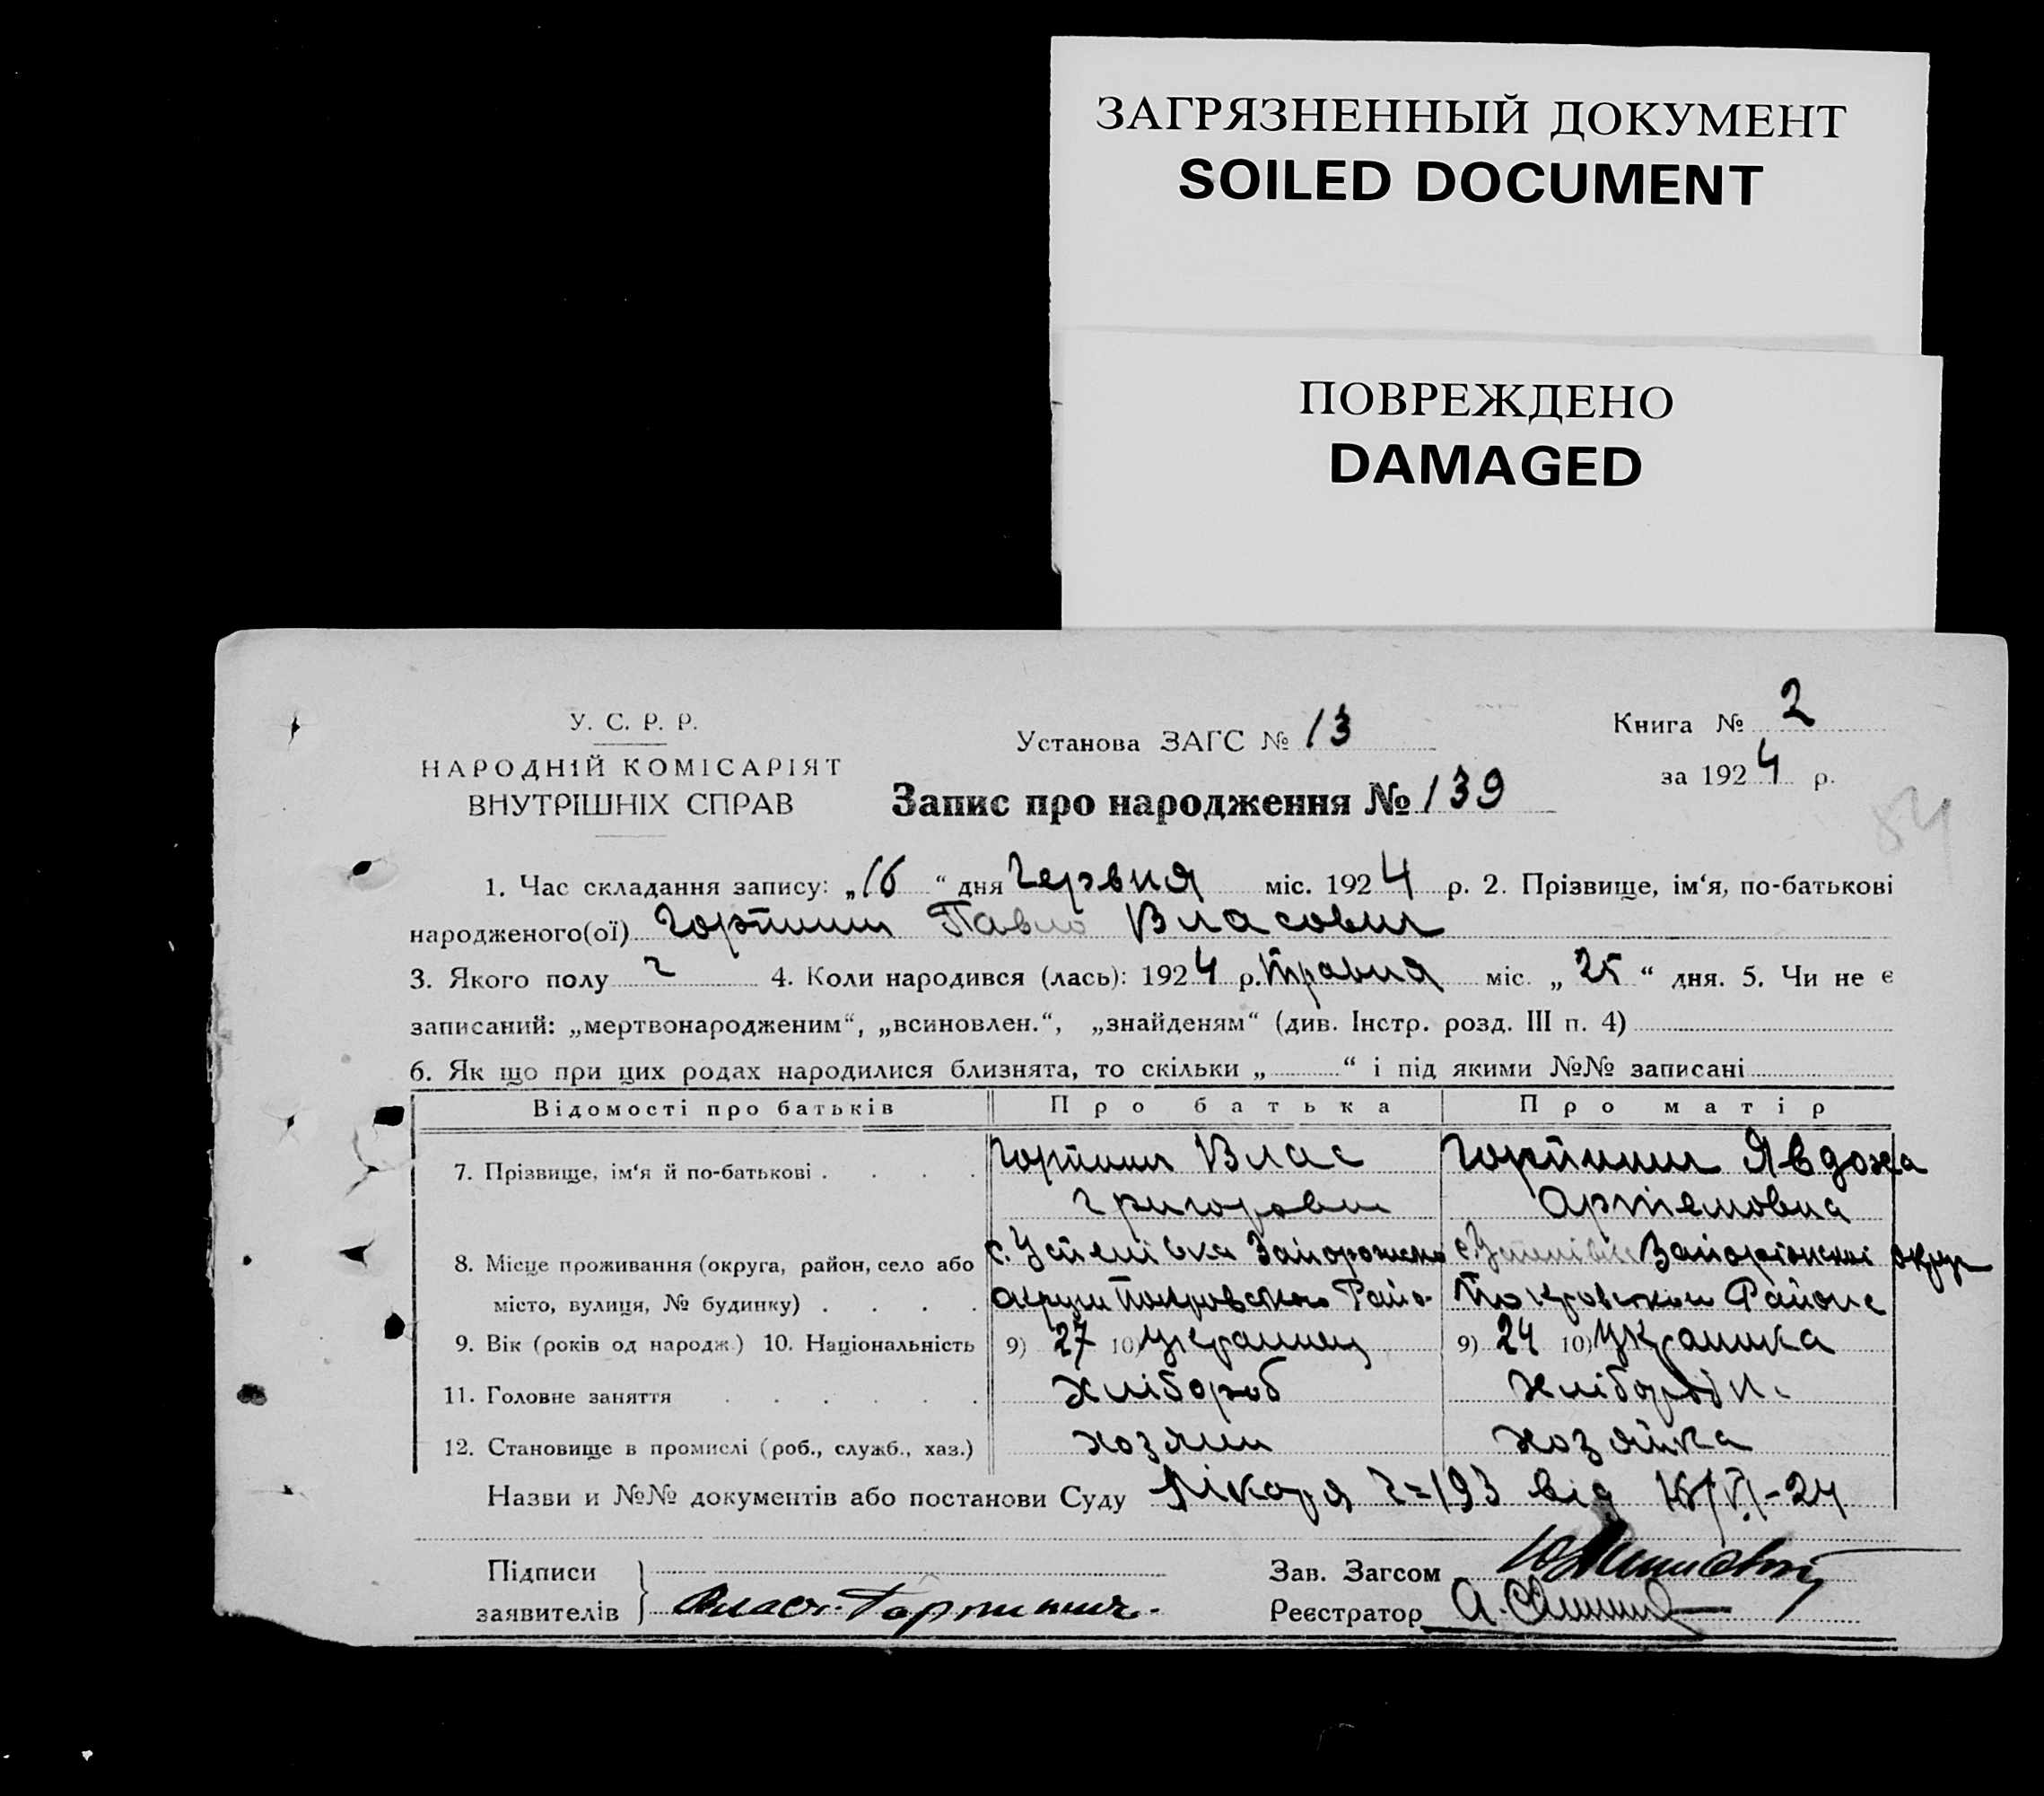 ЗАГРЯЗНЕННЫЙ ДОКУМЕНТ
SOILED DOCUMENT
ПОВРЕЖДЕНО
DAMAGED
У. С. Р. Р.
НАРОДНІЙ КОМІСАРІЯТ
ВНУТРІШНІХ СПРАВ
Установа ЗАГС № 13
Книга № 2
за 1924 р.
Запис про народження № 139
84
1. Час складання запису: „16“ дня Червня міс. 1924 р. 2. Прізвище, ім‘я, по-батькові
народженого(ої) Павло Власович
3. Якого полу ч 4. Коли народився (лась): 1924 р. травня міс. „25“ дня. 5. Чи не є
записаний: „мертвонародженим“, „всиновлен.“, „знайденям“ (див. Інстр. розд. III п. 4)
6. Як що при цих родах народилися близнята, то скільки „ “ і під якими №№ записані
Відомості про батьків Про батька Про матір
7. Прізвище, ім‘я й по-батькові . . . . Влас Явдоха
Григорович Артемовна
8. Місце проживання (округа, район, село або
місто, вулиця, № будинку) . . . . округи Покровського Покровського
9. Вік (років од народж.) 10. Національність 9) 27 10) Українец 9) 24 10) Українка
11. Головне заняття . . . . . . хлібороб
12. Становище в промислі (роб., служб., хаз.) хозяин хозяйка
Назви и №№ документів або постанови Суду Лікаря ч=193 від 16/VI-24
Підписи
заявителів Влас
Зав. Загсом
Реєстратор А.